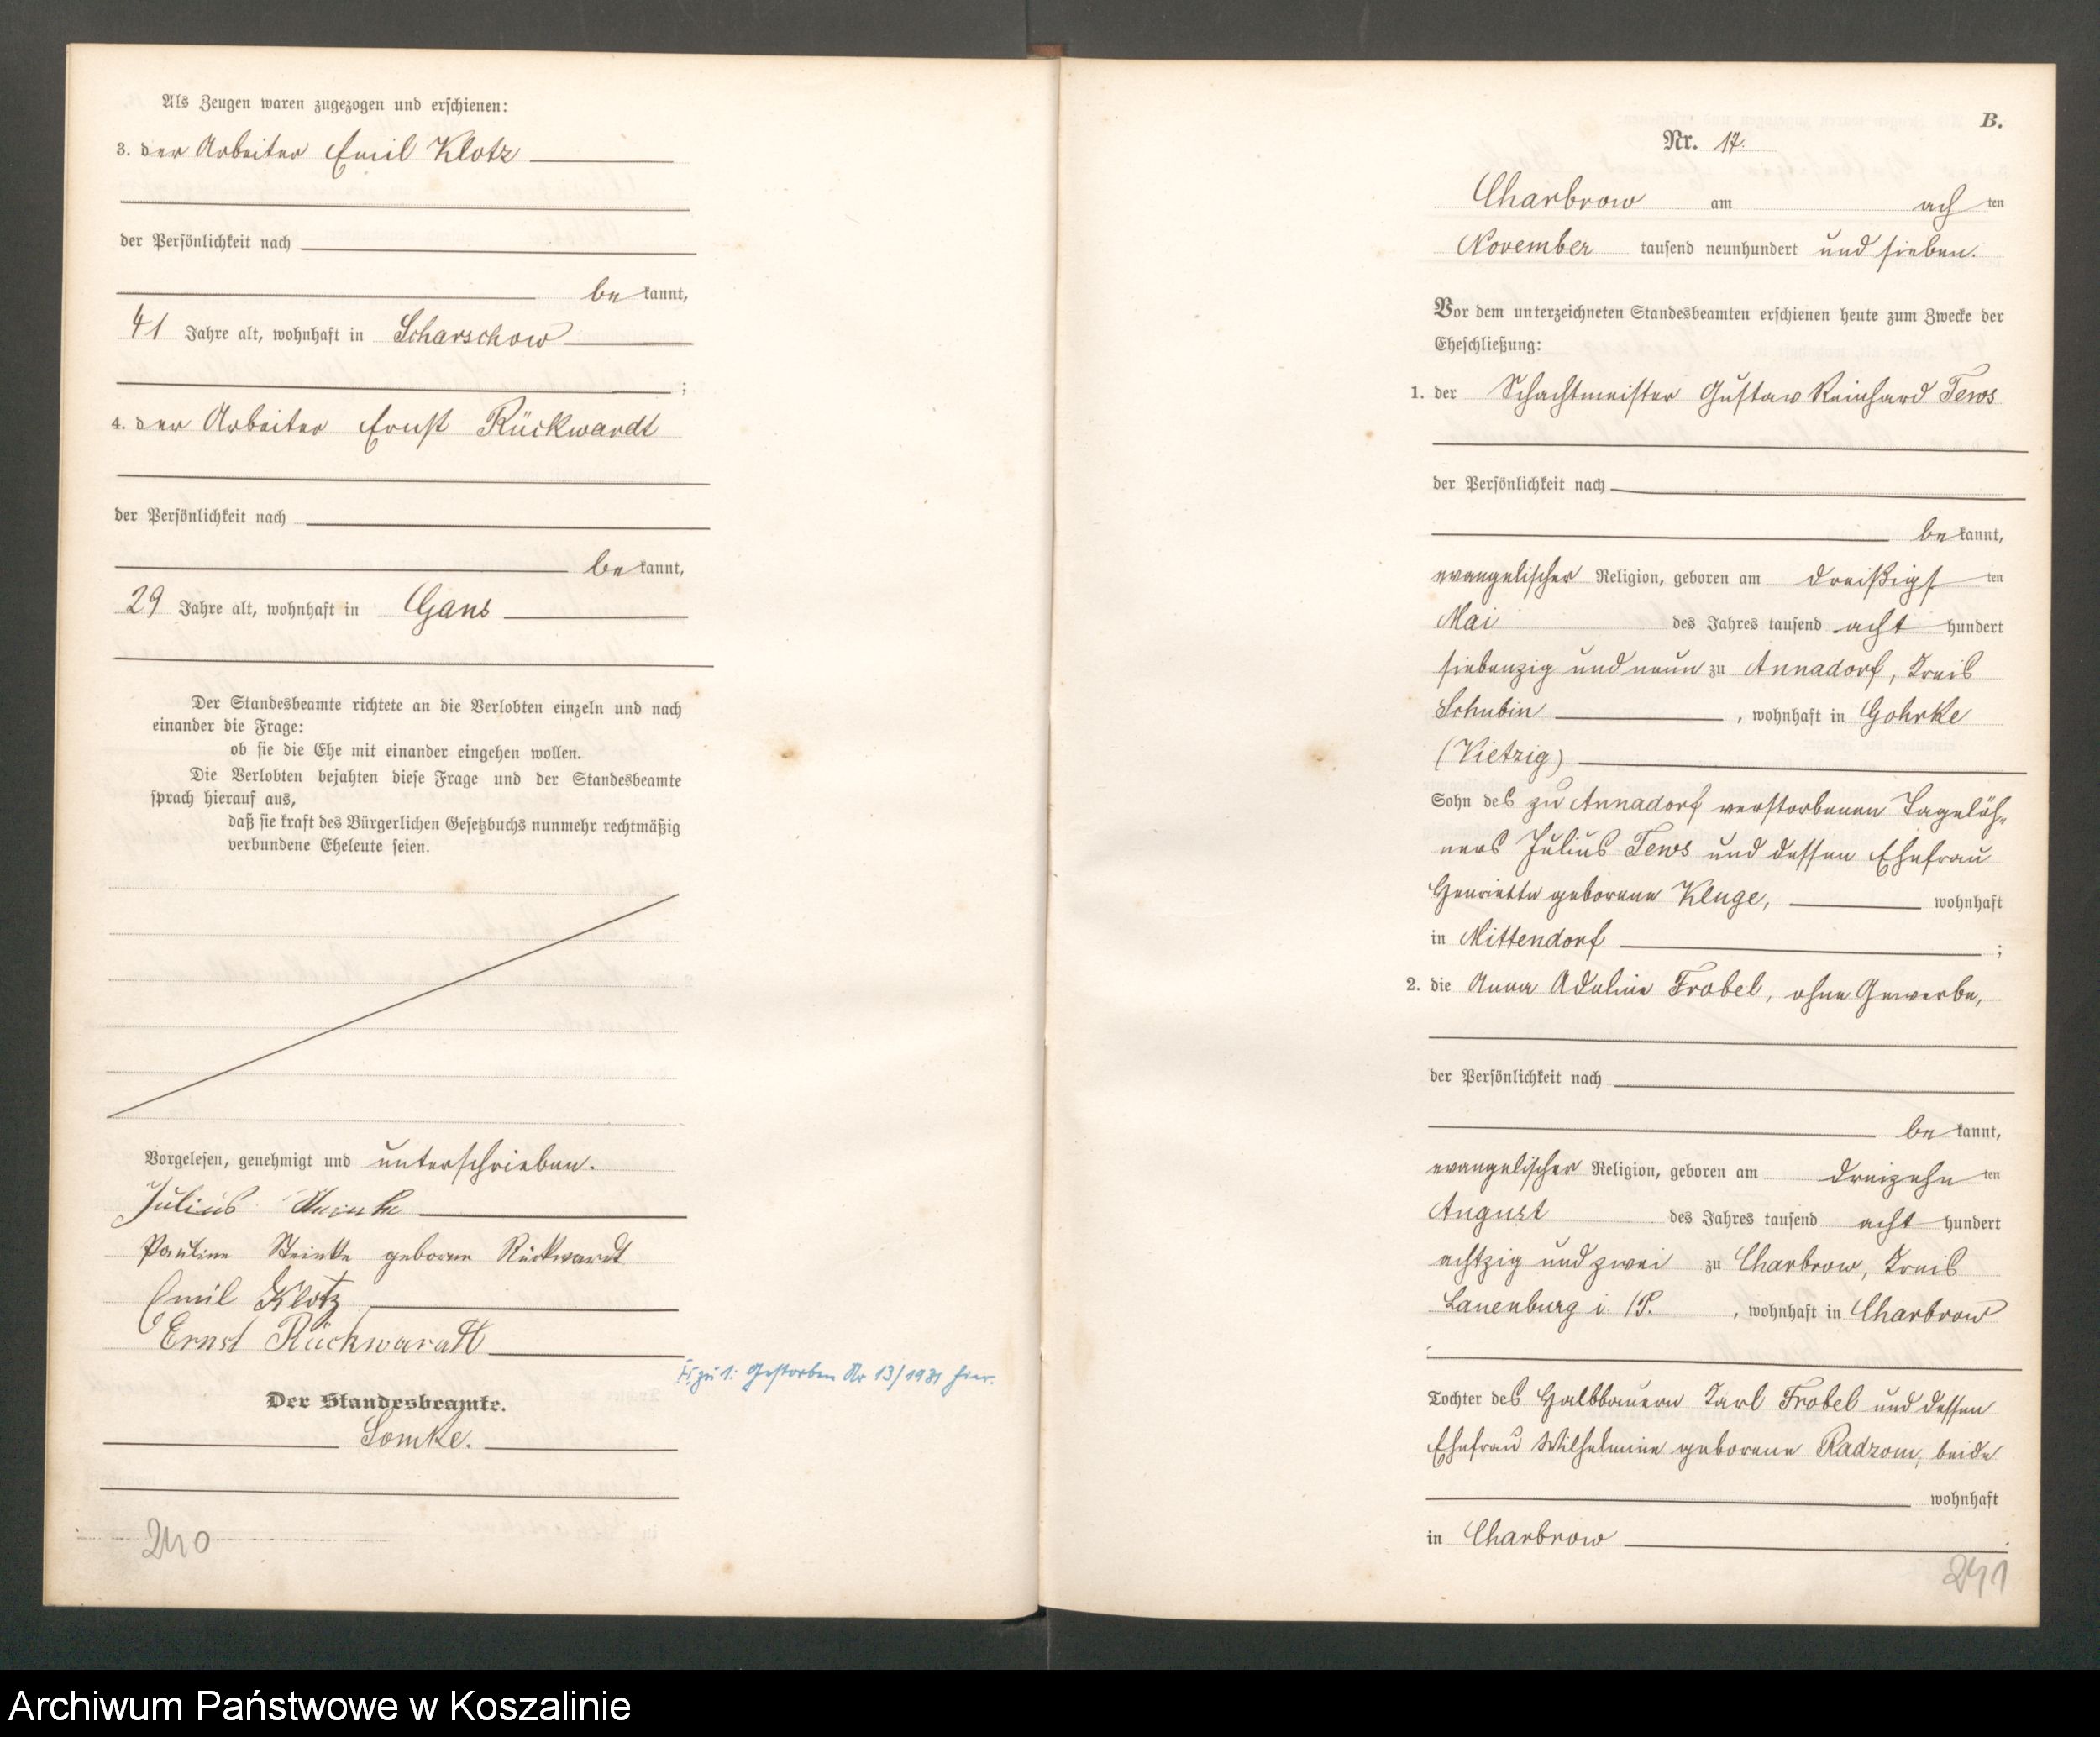 Als Zeugen waren zugezogen und erschienen:
3. der Arbeiter Emil Klotz
der Persönlichkeit nach
be kannt,
41 Jahre alt, wohnhaft in Scharschow
;
4. der Arbeiter Ernst Rückwardt
der Persönlichkeit nach
be kannt,
29 Jahre alt, wohnhaft in Gans
Der Standesbeamte richtete an die Verlobten einzeln und nach
einander die Frage:
ob sie die Ehe mit einander eingehen wollen.
Die Verlobten bejahten diese Frage und der Standesbeamte
sprach hierauf aus,
daß sie kraft des Bürgerlichen Gesetzbuchs nunmehr rechtmäßig
verbundene Eheleute seien.
Vorgelesen, genehmigt und unterschrieben.
Julius Steinke
Pauline Steinke geborne Rückwardt
Emil Klotz
Ernst Rückwardt
H. zu 1: Gestorben Nr 13/1931 hier.
Der Standesbeamte.
Somke.
240
B.
Nr. 17.
Charbrow am ach ten
November tausend neunhundert und sieben.
Vor dem unterzeichneten Standesbeamten erschienen heute zum Zwecke der
Eheschließung:
1. der Schachtmeister Gustav Reinhard Tews
der Persönlichkeit nach
be kannt,
evangelischer Religion, geboren am dreißigs ten
Mai des Jahres tausend acht hundert
siebenzig und neun zu Annadorf, Kreis
Schubin, wohnhaft in Gohrke
(Vietzig)
Sohn des zu Annadorf verstorbenen Tagelöh-
ners Julius Tews und dessen Ehefrau
Henriette geborene Kluge, wohnhaft
in Mittendorf ;
2. die Anna Adeline Frobel, ohne Gewerbe,
der Persönlichkeit nach
be kannt,
evangelischer Religion, geboren am dreizehn ten
August des Jahres tausend acht hundert
achtzig und zwei zu Charbrow, Kreis
Lauenburg i. P., wohnhaft in Charbrow
Tochter des Halbbauern Karl Frobel und dessen
Ehefrau Wilhelmine geborene Radzom, beide
wohnhaft
in Charbrow.
241
Archiwum Państwowe w Koszalinie